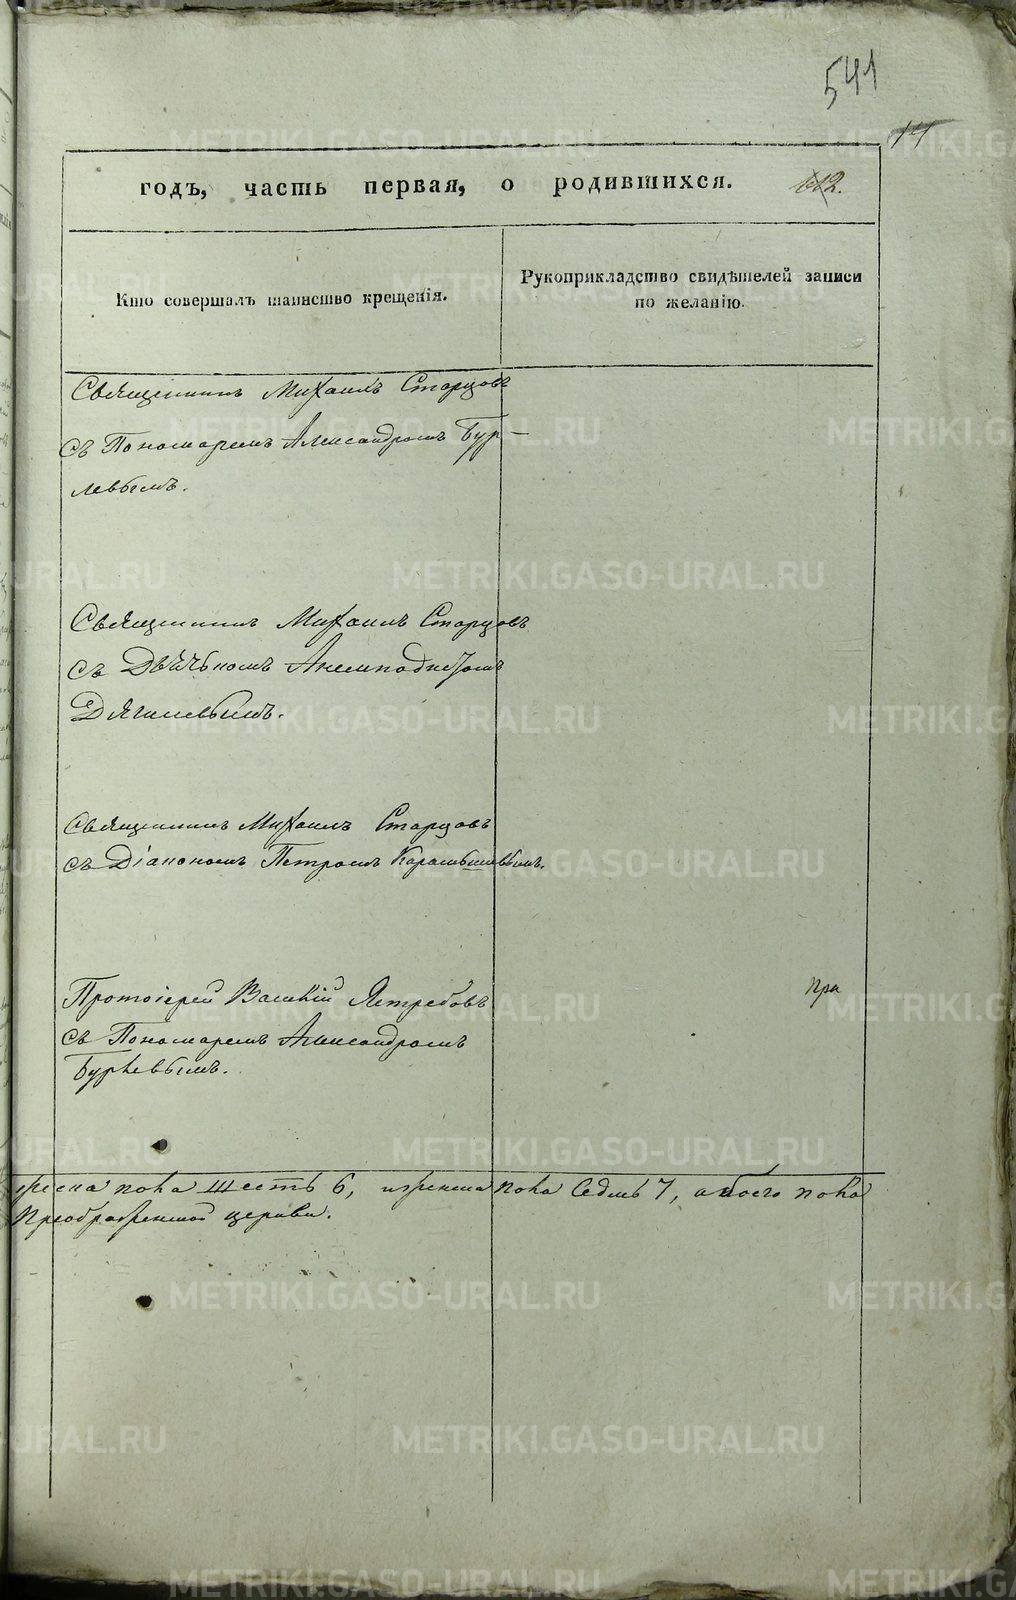 541
14
годъ, часть первая, о родившихся.
112.
Кто совершалъ таинство крещенія.
Рукоприкладство свидѣтелей записи
по желанію.
Священникъ Михаилъ Старцовъ
съ Пономаремъ Александромъ Бур-
левымъ.
Священникъ Михаилъ Старцовъ
съ Дьячькомъ Анемподистомъ
Дягилевымъ.
Священникъ Михаилъ Старцовъ
съ Діакономъ Петромъ Карамышевымъ.
Протоіерей Василій Ястребовъ
при
съ Пономаремъ Александромъ
Бурлевымъ.
пола шесть 6, женска пола Седмь 7, а обоего пола
Преображенской церкви.
METRIKI.GASO-URAL.RU